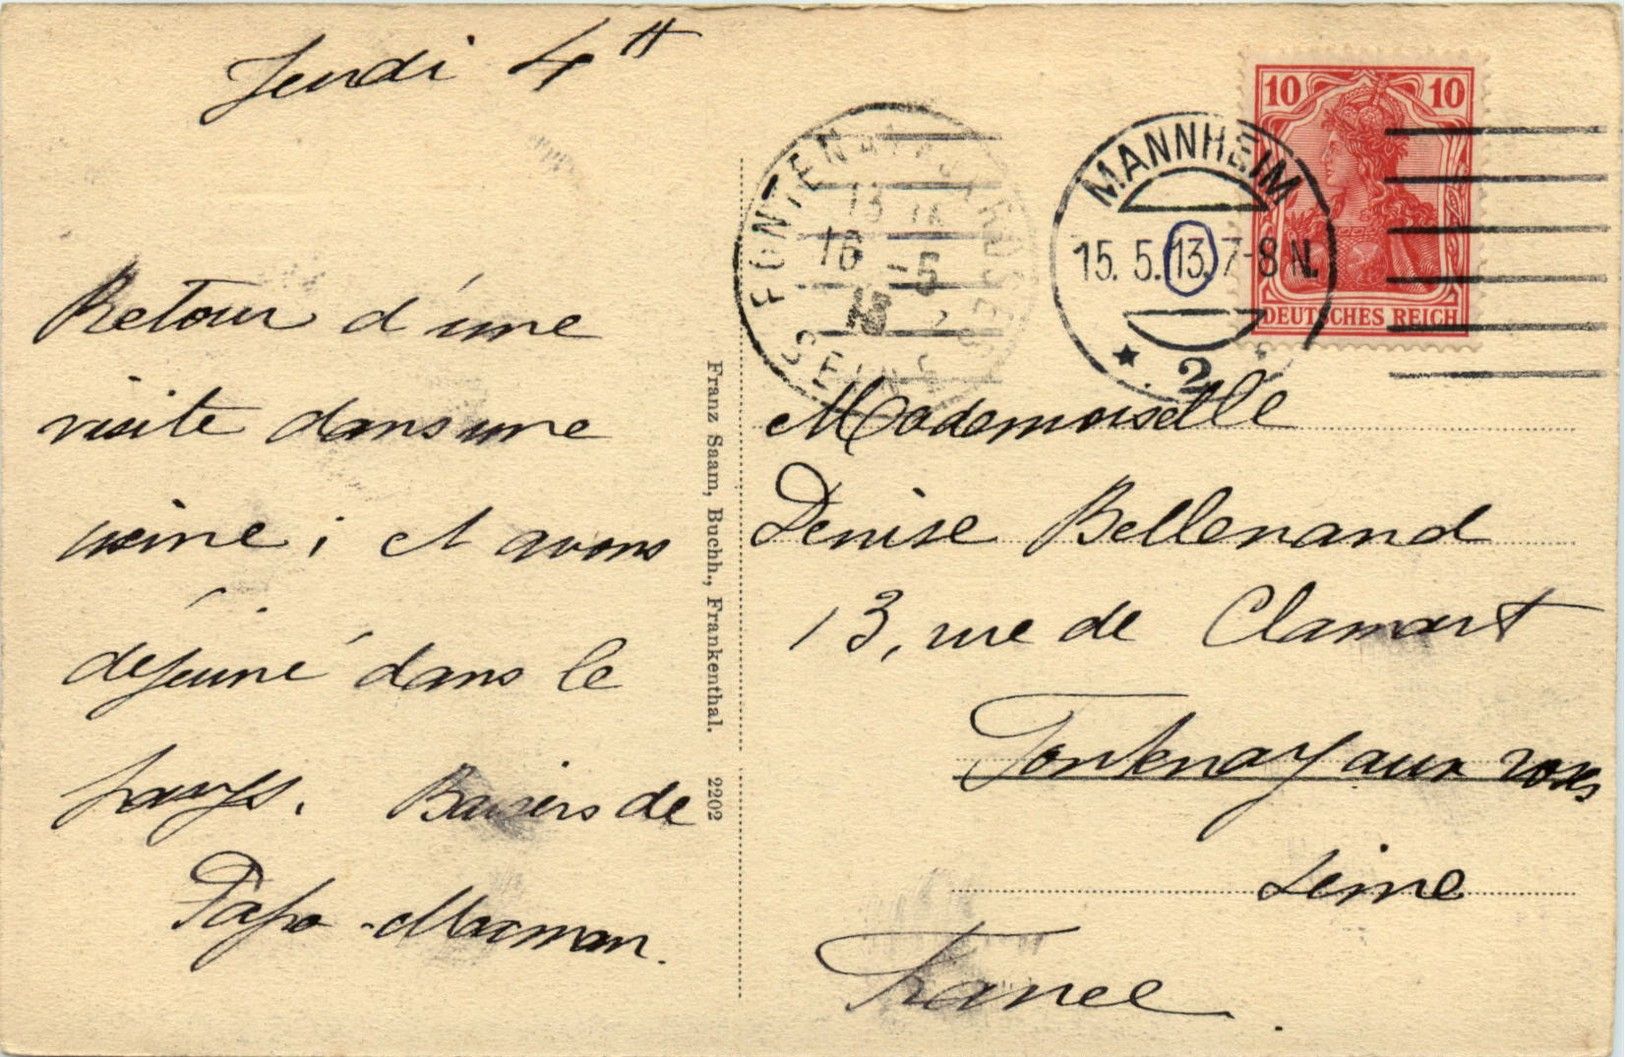 Jeudi 4 H
Retour d'une
visite dans une
usine ; et avons
déjeuné dans le
pays. Baisers de
Papa - Maman.
Franz Saam, Buchh., Frankenthal. 2202
FONTENAY AUX ROSES
SEINE
13
16 - 5
13
MANNHEIM
15. 5. 13. 7-8 N.
* 2
10 10
DEUTSCHES REICH
Mademoiselle
Denise Bellenand
13, rue de Clamart
Fontenay aux roses
Seine
France.